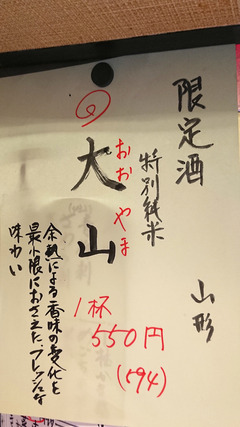 限定酒
山形
特別純米
おおやま
大山
1杯
550円
(594)
余熱による香味の変化を
最小限におさえた、フレッシュな
味わい